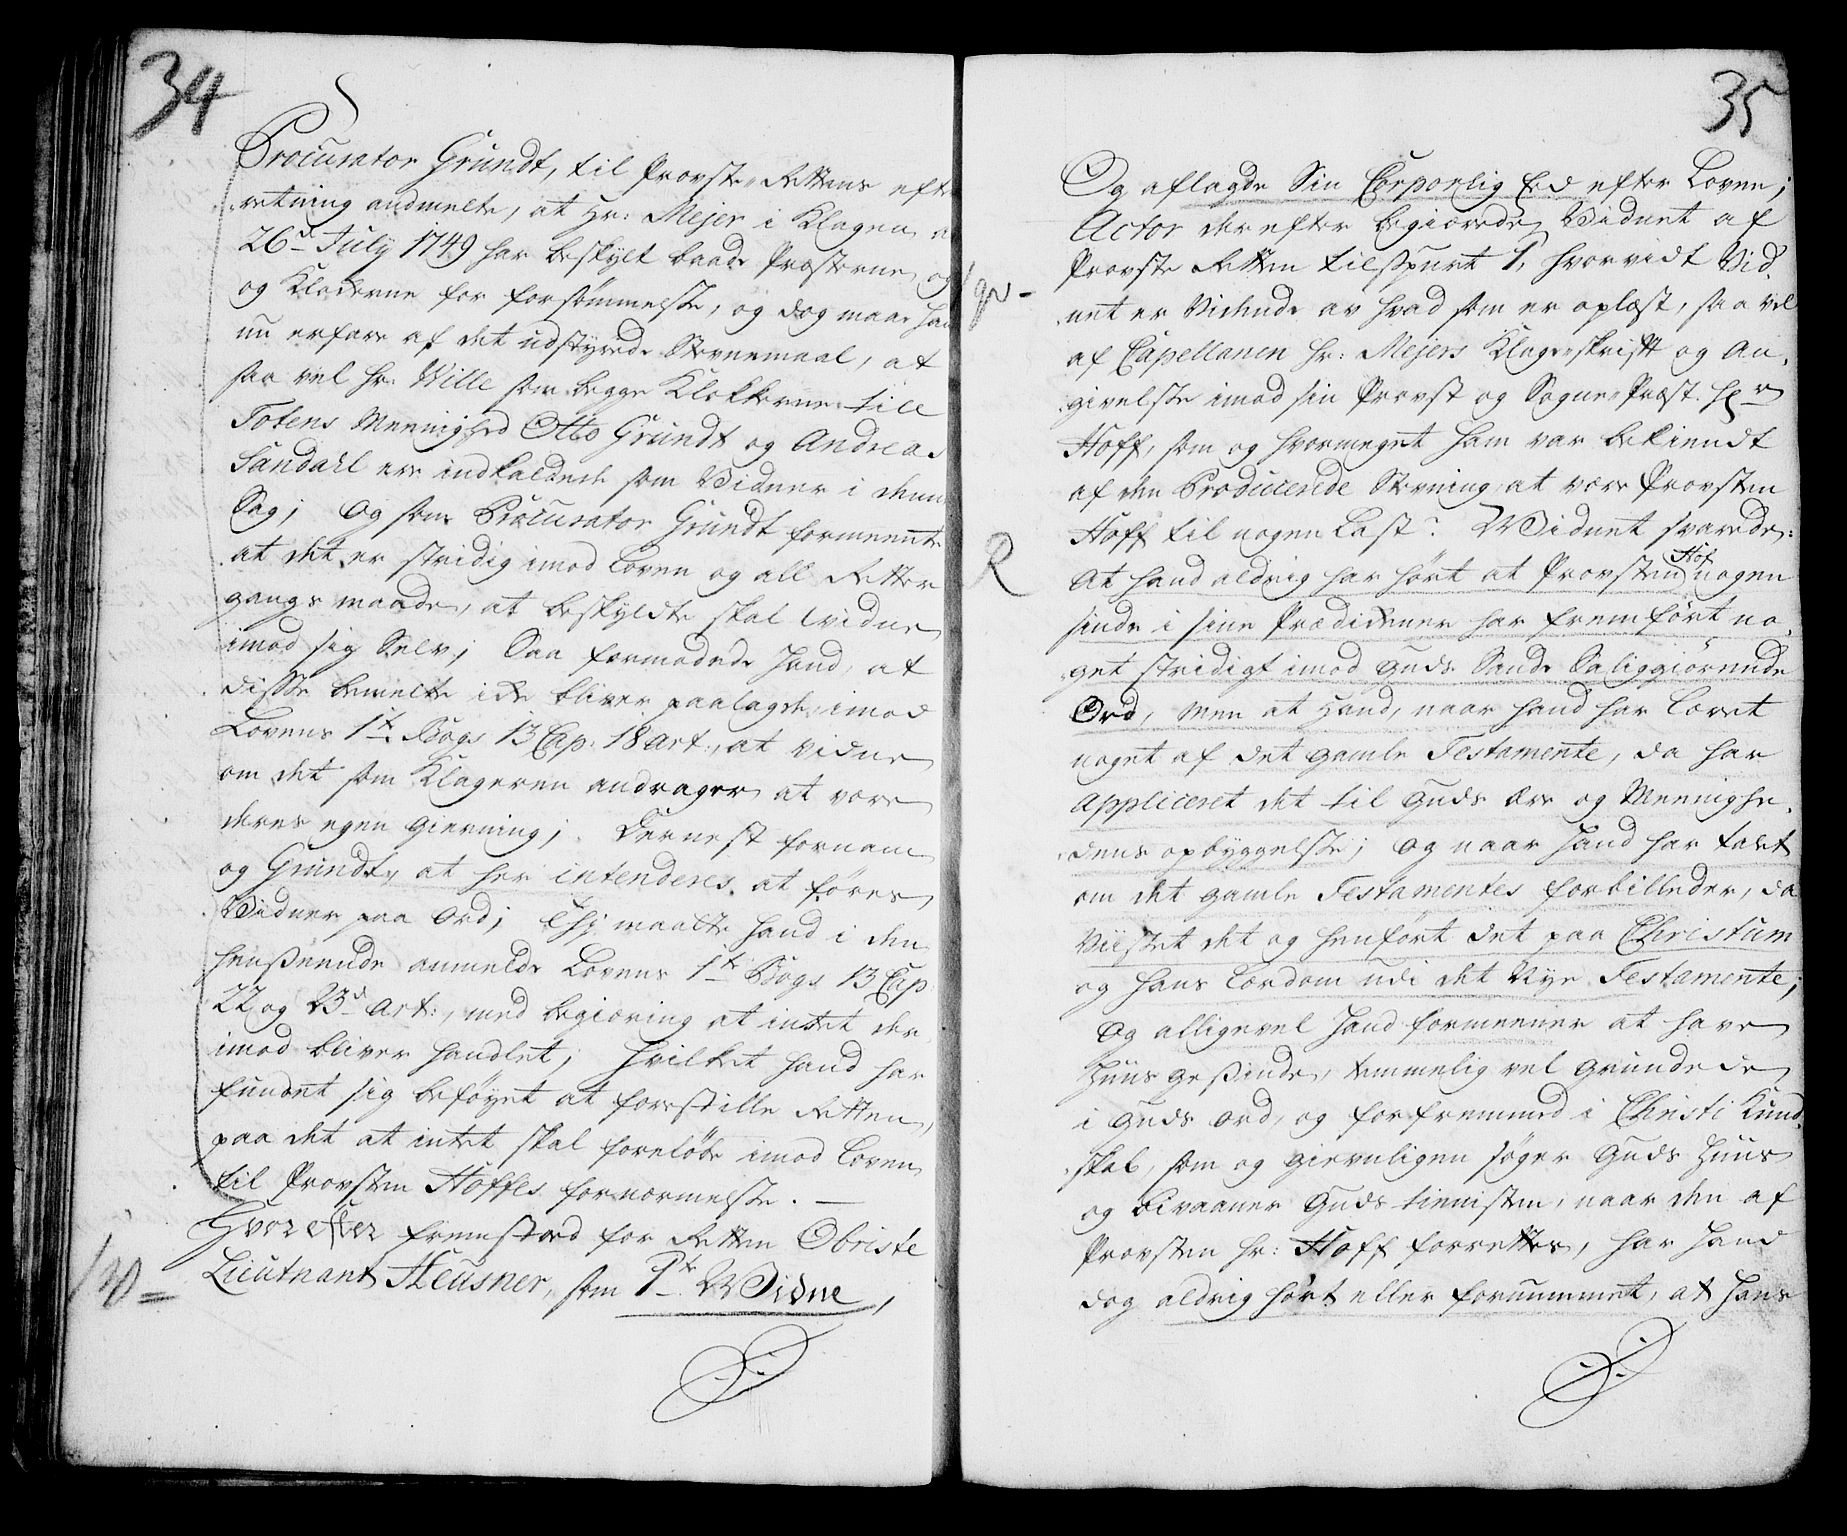 34
Procurator Grundt, til Provste-Rettens efter
retning anmelte, at Hr: Mejer i Klagen a
26d July 1749 har beskylt baade Præsterne og
og Klokerne for forsømmelse, og dog maae hand
nu erfare af det udstyrede Stevnemaal, at
saa vel Hr. Wille som begge Klokkerne till
Totens Meenighed Otto Grundt og Andreas
Sandahl ere indkaldede som Vidner i denne
Sag; Og som Procurator Grundt formeente
at det er stridig imod Loven og all Retter
gangs maade, at beskyldte skal vidne
imod sig Selv; Saa formodede hand, at
disse bemelte icke bliver paalagde, imod
Lovens 1te Bogs 13 Cap: 18 art:, at vidne
om det som Klageren andrager at være
deres egen gierning; Dernest fornam
og Grundt, at her intenderes at føres
Vidner paa Ord; Thj maatte hand i den
henseende anmelde Lovens 1te Bogs 13 Cap
22 og 23d art:, med begiæring at intet der
imod bliver handlet; Hvilket hand har
fundet sig beføyet at forestille Retten,
paa det at intet skal foreløbe imod Loven
til Provsten Hoffes fornærmelse. —
Hvorefter fremstod for Retten Obriste
Lieutnant Heusner, som 1te Widne,
35
Og aflagde Sin Corporlig Eed efter Loven;
Actor derefter begiærede Vidnet af
Provste Retten tilspurt 1, hvorvidt Vid
net er Vidende av hvad som er oplæst, saa vel
af Capellanen Hr: Mejers Klageskrift og An
givelse imod sin Provst og Sogne-Præst Hr
Hoff, som og hvormeget ham var bekiendt
af den Producerede Stevning, at være Provsten
Hoff til nogen Last? Widnet svarede:
R
At hand aldrig har hørt at Provsten Hof nogen
sinde i sine Prædickener har fremført no
get stridigt imod Guds Sande Saliggiørende
Ord, men at Hand, naar hand har Læret
noget af det gamle Testamente, da har
Appliceret det til Guds ære og Meenighe
dens opbyggelse; og naar hand har talt
om det gamle Testamentes forbilleder, da
Viistet det og henført det paa Christum
og hans Lærdom udi det Nye Testamente;
Og alligevel hand formeener at have
Huus gesinde, temmelig vel grundede
i Guds Ord, og forfremmed i Christi Kund
skab, som og gierneligen søger Guds Huus
og bivaaner Guds tienisten, naar den af
Provsten Hr: Hoff forrettes, har hand
dog aldrig hørt eller fornummet, at hans